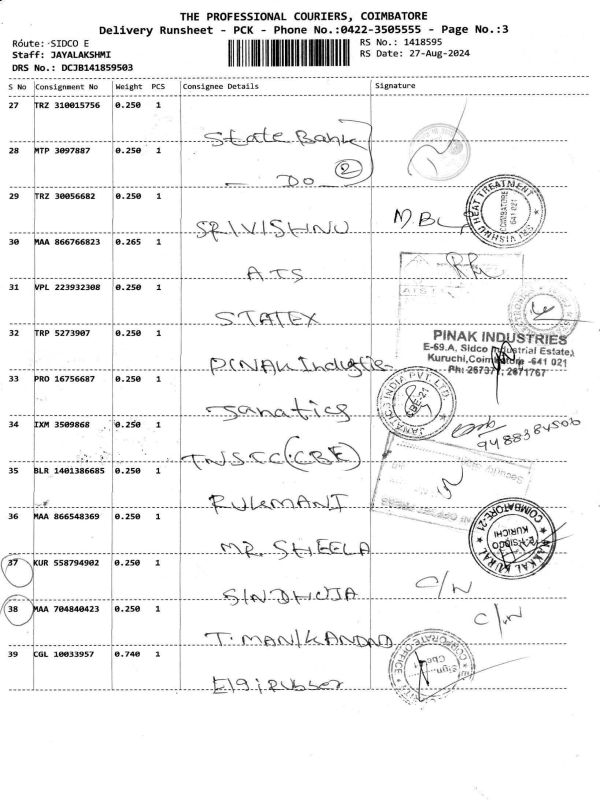 THE PROFESSIONAL COURIERS, COIMBATORE
Delivery Runsheet - PCK - Phone No.:0422-3505555 - Page No.:3
Route: SIDCO E
RS No.: 1418595
Staff: JAYALAKSHMI
RS Date: 27-Aug-2024
DRS No.: DCJB141859503
S No Consignment No Weight PCS Consignee Details Signature
27 TRZ 310015756 0.250 1
State Bank
28 MTP 3097887 0.250 1
Do 2
29 TRZ 30056682 0.250 1
SRI VISHNU
SRI VISHNU HEAT TREATMENT
COIMBATORE 641 021
30 MAA 866766823 0.265 1
ATS
31 VPL 223932308 0.250 1
STATEX
32 TRP 5273907 0.250 1
PINAK Industrie
PINAK INDUSTRIES
E-69.A, Sidco Industrial Estate,
Kuruchi, Coimbatore -641 021
Ph: 267377, 2671767
33 PRO 16756687 0.250 1
Janatics
JANATICS INDIA PVT LTD.
CBE-21
34 IXM 3509868 0.250 1
TNSCC (CBE)
9488384506
35 BLR 1401386685 0.250 1
RUKMANI
Security
36 MAA 866548369 0.250 1
MR. SHEELA
MAKKAL KURAL
COIMBATORE-21
SIDCO
KURICHI
37 KUR 558794902 0.250 1
SINDHUJA
C/N
38 MAA 704840423 0.250 1
T. MANIKANDAD
C/N
39 CGL 10033957 0.740 1
Elgi Rubber
CORPORATE OFFICE
Sign.
Cbe